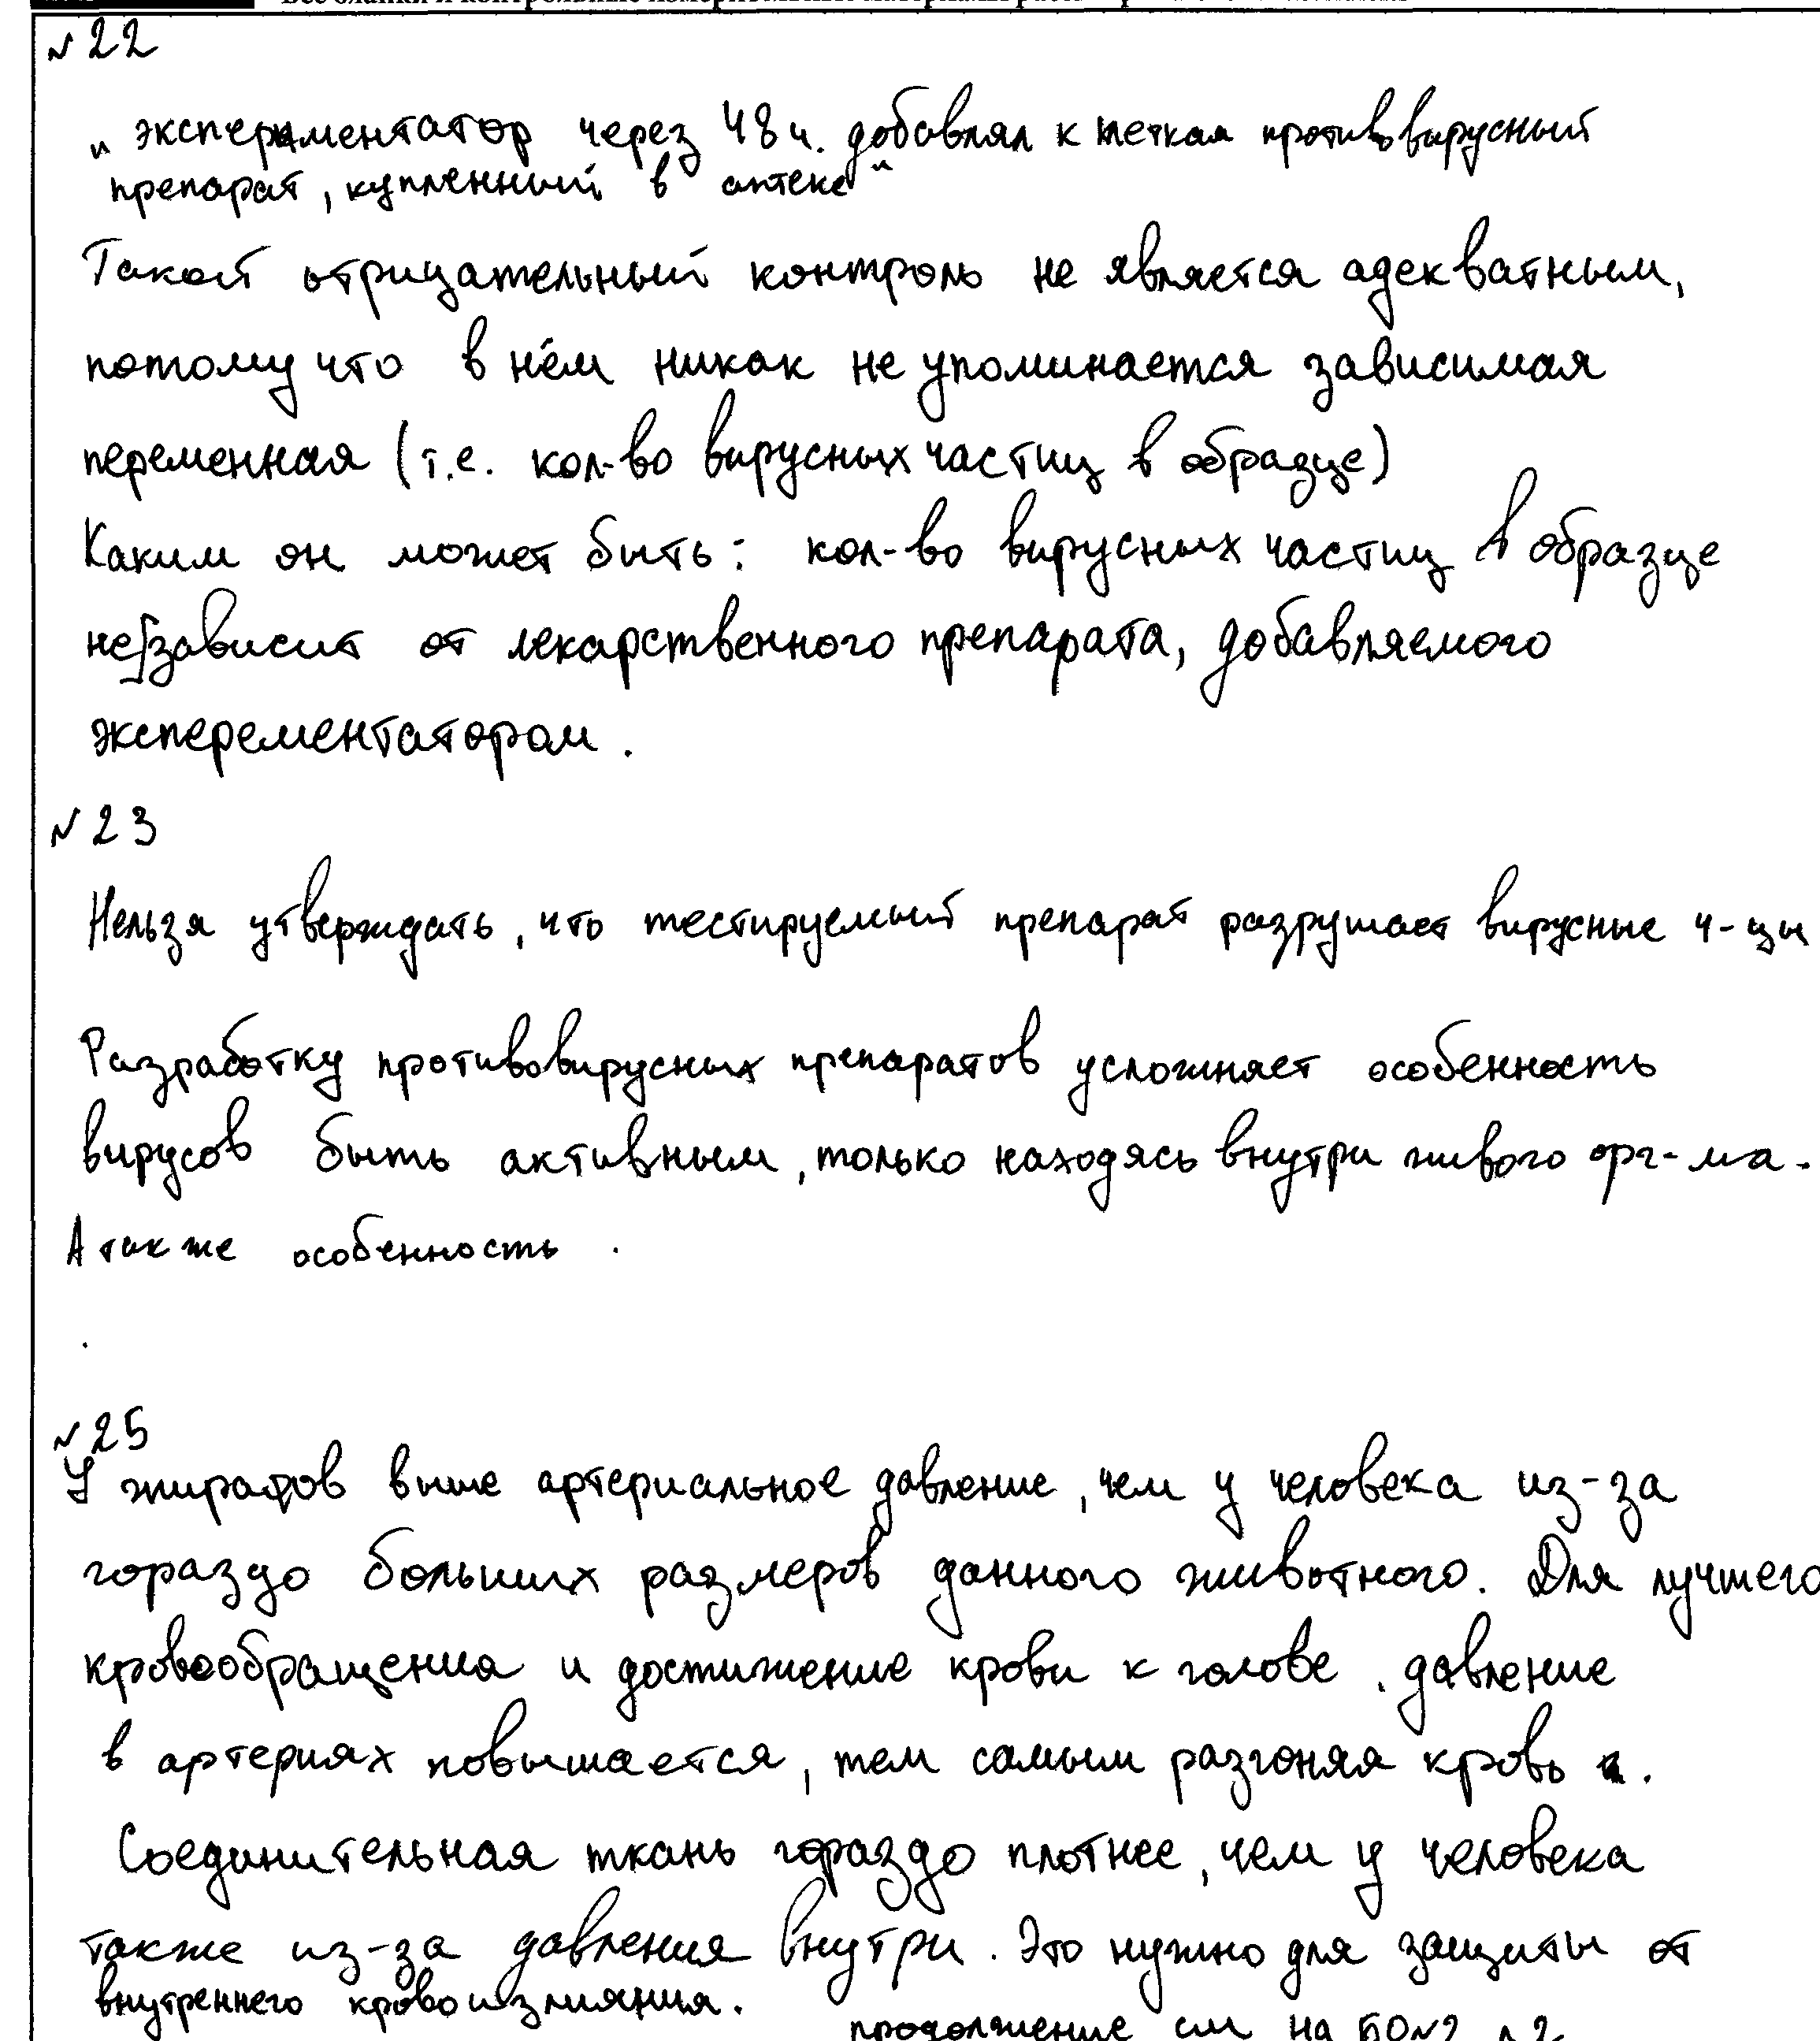 №22
"экспериментатор через 48 ч. добавлял к клеткам противовирусный
препарат, купленный в аптеке"
Такой отрицательный контроль не является адекватным,
потому что в нём никак не упоминается зависимая
переменная (т.е. кол-во вирусных частиц в образце)
Каким он может быть: кол-во вирусных частиц в образце
не зависит от лекарственного препарата, добавляемого
эксперементатором.
№23
Нельзя утверждать, что тестируемый препарат разрушает вирусные ч-цы
Разработку противовирусных препаратов усложняет особенность
вирусов быть активным, только находясь внутри живого орг-ма.
А также особенность .
№25
У жирафов выше артериальное давление, чем у человека из-за
гораздо больших размеров данного животного. Для лучшего
кровообращения и достижение крови к голове . давление
в артериях повышается, тем самым разгоняя кровь .
Соединительная ткань гораздо плотнее, чем у человека
также из-за давления внутри. Это нужно для защиты от
внутреннего кровоизлияния.
продолжение см на БО№2 л2